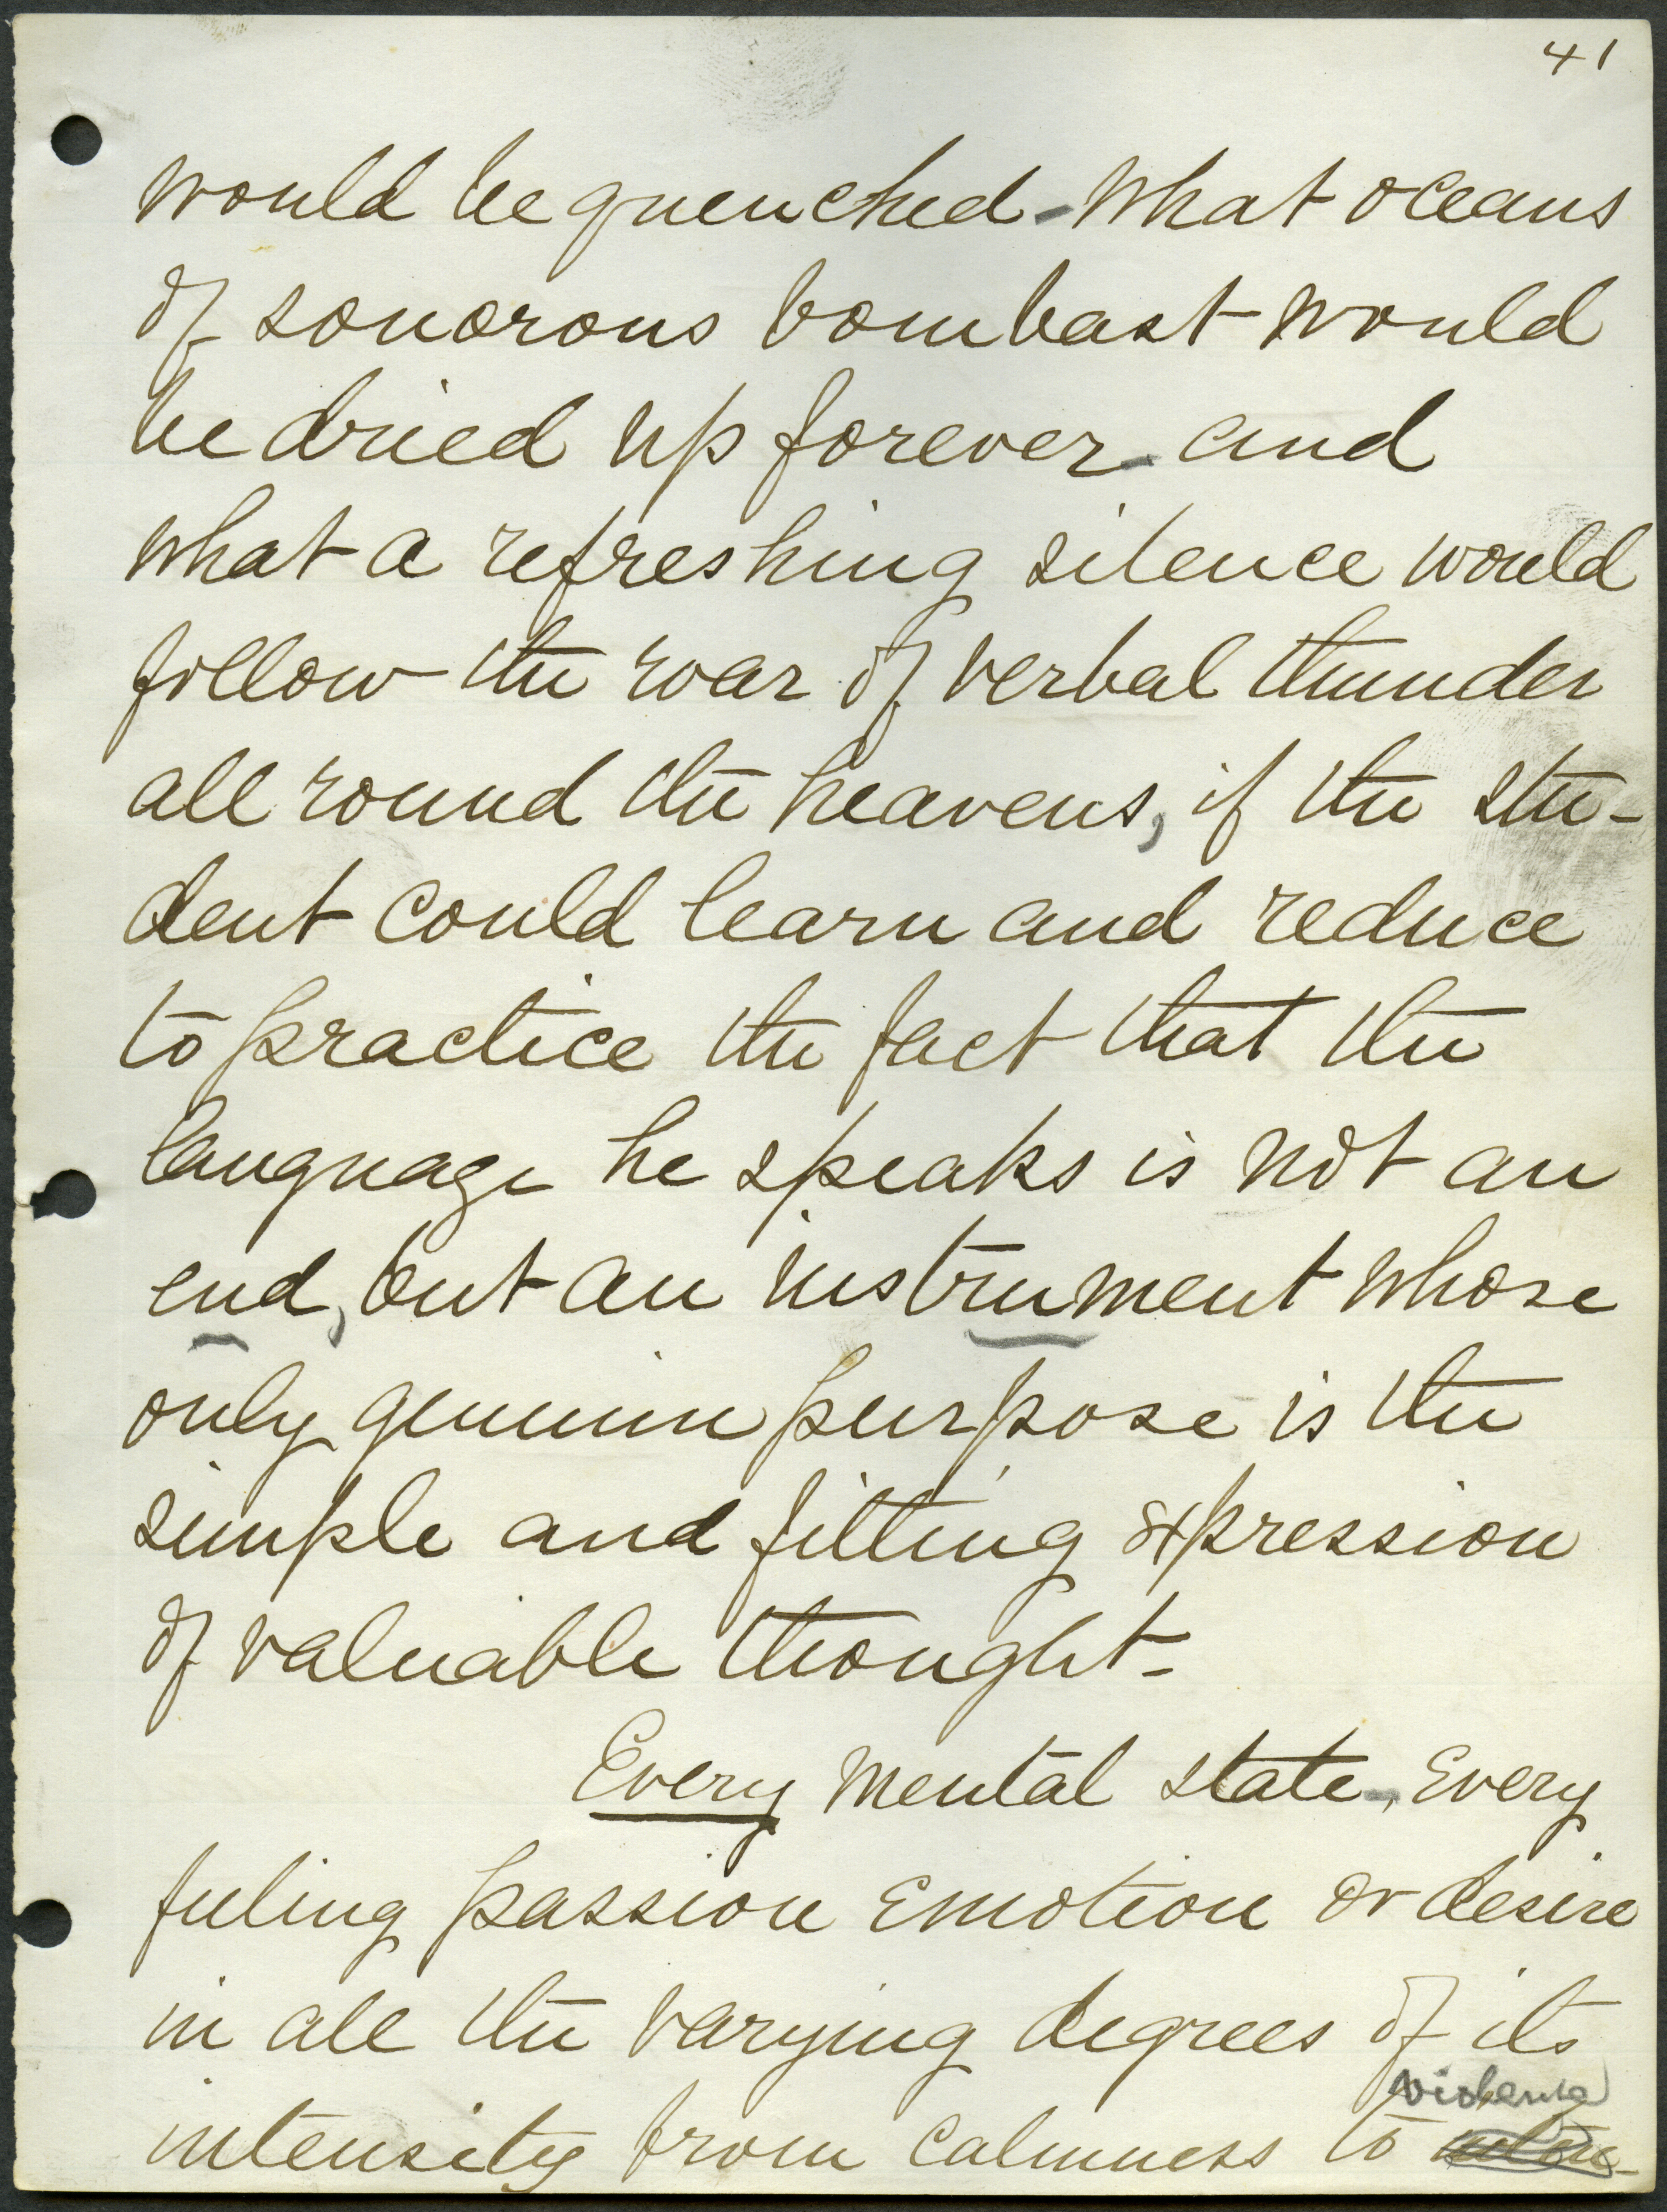 41
would be quenched - What oceans
of sonorous bombast would
be dried up forever - and
what a refreshing silence would
follow the roar of verbal thunder
all round the heavens, if the stu-
dent could learn and reduce
to practice the fact that the
language he speaks is not an
end, but an instrument whose
only genuine purpose is the
simple and fitting expression
of valuable thought -
Every mental state -, Every
feeling passion Emotion or desire
in all the varying degrees of its
violence
intensity from calmness to